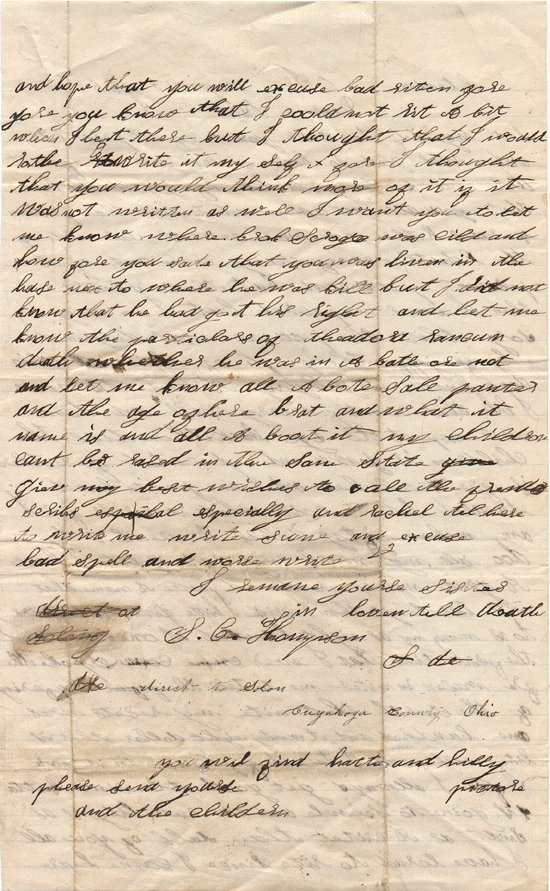 and hope that you will excuse bad riten fore
yore you know that I could not rit A bit
when I left there but I thought that I would
rathe write it my self & fore I thought
that you would think more of it if it
was not written as well I want you to let
me know where brok was cild and
how fore you sade that you was liven in the
hase nex to where he was kill but I did not
know that he had got his right and let me
know the particlars of theadora
death whether he was in A batle ore not
and let me know all A bote Sale panter
and the age of here brat and what it
name is and all A boat it my children
cant be rased in the same State give
giev my best wishes to all the frends
scribs especial especially and rachel tel here
to write me write sione and excuse
bad spell and worse write 22
I remane yourse Sister
direct at in loven tell death
Solong S. C. Thompson
S de
direct to Solon
Cuyahoga County Ohio
you wil find hatte and billy
please send yourse picture
and the childern